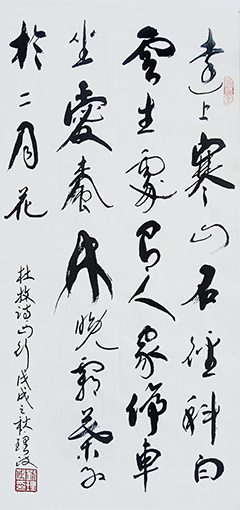 遠上寒山石徑斜白
雲生處有人家停車
坐愛楓林晚霜葉紅
於二月花
杜牧诗山行戊戌之秋